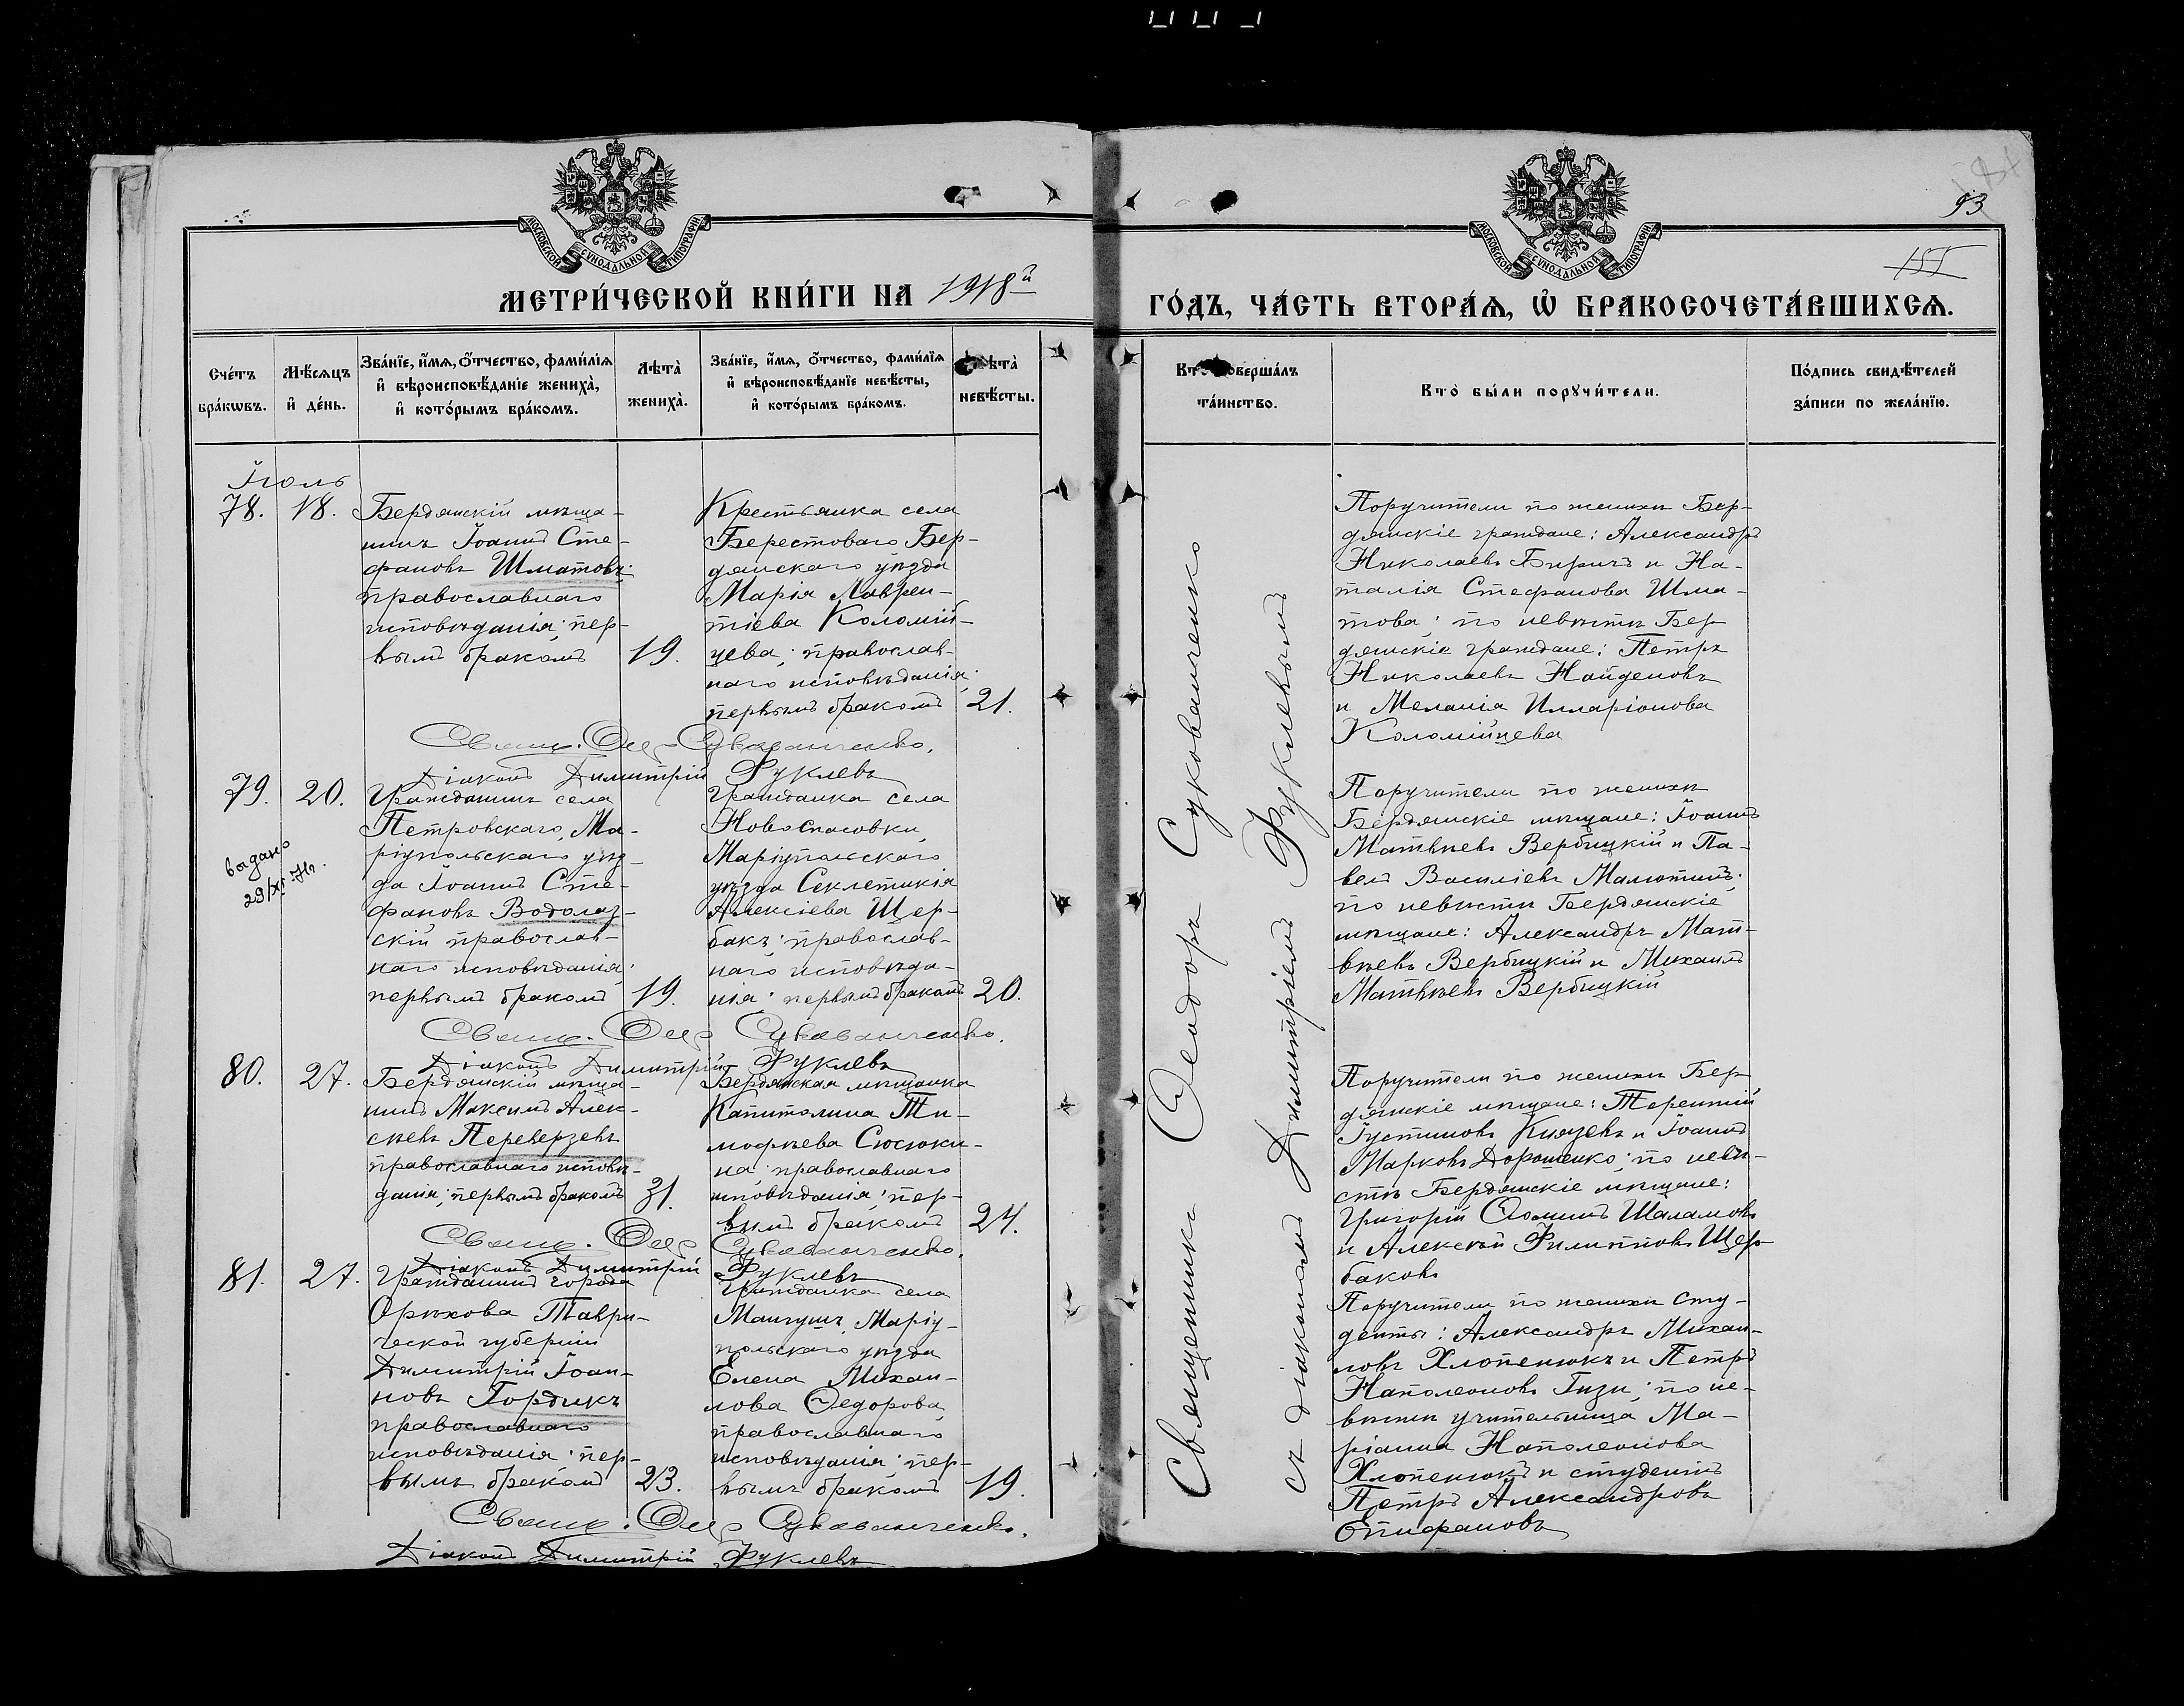 93
155
МОСКОВСКОЙ СѴНОДАЛЬНОЙ ТИПОГРАФІИ
МОСКОВСКОЙ СѴНОДАЛЬНОЙ ТИПОГРАФІИ
МЕТРИ́ЧЕСКОЙ КНИ́ГИ НА 1918й
ГО́ДЪ, ЧА́СТЬ ВТОРА́Ѧ, Ѡ҆ БРАКОСОЧЕТА́ВШИХСѦ.
Сче́тъ бра́кѡвъ.
Мѣ́сѧцъ и҆ де́нь.
Зва́нїе, и҆́мѧ, ѻ҆́тчество, фами́лїѧ
и҆ вѣроисповѣ́данїе жениха̀,
и҆ кото́рымъ бра́комъ.
Лѣта̀ жениха̀.
Зва́нїе, и҆́мѧ, ѻ҆́тчество, фами́лїѧ
и҆ вѣроисповѣ́данїе невѣ́сты,
и҆ кото́рымъ бра́комъ.
Лѣта̀ невѣ́сты.
Кто̀ соверша́лъ
та́инство.
Кто̀ бы́ли порꙋчи́тели.
По́дпись свидѣ́телей
за́писи по жела́нїю.
Іюль
78. 18.
Бердянскій мѣща-
нинъ Іоаннъ Сте-
фановъ Шматовъ;
православнаго
исповѣданія; пер-
вымъ бракомъ
19.
Крестьянка села
Берестоваго Бер-
дянскаго уѣзда
Марія Лаврен-
тіева Коломій-
цева; православ-
наго исповѣданія;
первымъ бракомъ
21.
Поручители по женихѣ Бер-
дянскіе граждане: Александръ
Николаевъ Биричъ и На-
талія Стефанова Шма-
това; по невѣстѣ Бер-
дянскіе граждане: Петръ
Николаевъ Найденовъ
и Меланія Илларіонова
Коломійцева
Свящ. Ѳеод. Сукованченко.
Діаконъ Димитрій Фуклевъ
79. 20.
выдано
29/XI
Гражданинъ села
Петровскаго, Ма-
ріупольскаго уѣз-
да Іоаннъ Сте-
фановъ Водолаз-
скій православ-
наго исповѣданія;
первымъ бракомъ
19.
Гражданка села
Новоспасовки,
Маріупольскаго
уѣзда Секлетикія
Алексіева Щер-
бакъ; православ-
наго исповѣда-
нія; первымъ бракомъ
20.
Поручители по женихѣ
Бердянскіе мѣщане: Іоаннъ
Матвѣевъ Вербицкій и Па-
велъ Василіевъ Малютинъ;
по невѣстѣ Бердянскіе
мѣщане: Александръ Мат-
вѣевъ Вербицкій и Михаилъ
Матвѣевъ Вербицкій
Свящ. Ѳеод. Сукованченко.
Діаконъ Димитрій Фуклевъ
80. 27.
Бердянскій мѣща-
нинъ Максимъ Алек-
сѣевъ Переверзевъ
православнаго исповѣ-
данія; первымъ бракомъ
31.
Бердянская мѣщанка
Капитолина Ти-
мофѣева Сюсюки-
на; православнаго
исповѣданія; пер-
вымъ бракомъ
24.
Поручители по женихѣ Бер-
дянскіе мѣщане: Терентій
Іустиновъ Князевъ и Іоаннъ
Марковъ Дорошенко; по невѣ-
стѣ Бердянскіе мѣщане:
Григорій Ѳоминъ Шаламовъ
и Алексѣй Филипповъ Щер-
баковъ
Свящ. Ѳеод. Сукованченко.
Діаконъ Димитрій Фуклевъ
81. 27.
Гражданинъ города
Орѣхова Таври-
ческой губерніи
Димитрій Іоан-
новъ Гордикъ
православнаго
исповѣданія; пер-
вымъ бракомъ
23.
Гражданка села
Мангушъ, Маріу-
польскаго уѣзда
Елена Михаи-
лова Ѳедорова,
православнаго
исповѣданія; пер-
вымъ бракомъ
19.
Поручители по женихѣ сту-
денты: Александръ Михаи-
ловъ Хлопенюкъ и Петръ
Наполеоновъ Гизи; по не-
вѣстѣ учительница Ма-
ріанна Наполеонова
Хлопенюкъ и студентъ
Петръ Александровъ
Епифановъ
Свящ. Ѳеод. Сукованченко.
Діаконъ Димитрій Фуклевъ
Священникъ Ѳеодоръ Сукованченко
съ діакономъ Димитріемъ Фуклевымъ